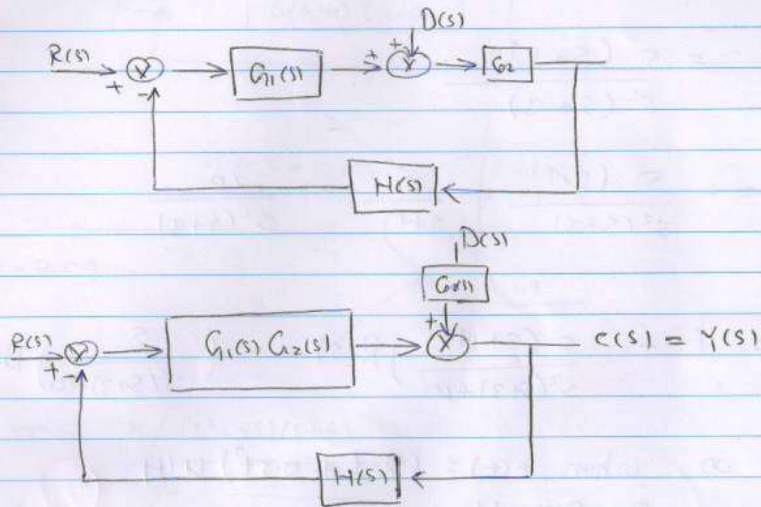 D(s)
R(s) + - G1(s) + + G2
H(s)
D(s)
G2(s)
R(s) + - G1(s) G2(s) + C(s) = Y(s)
H(s)